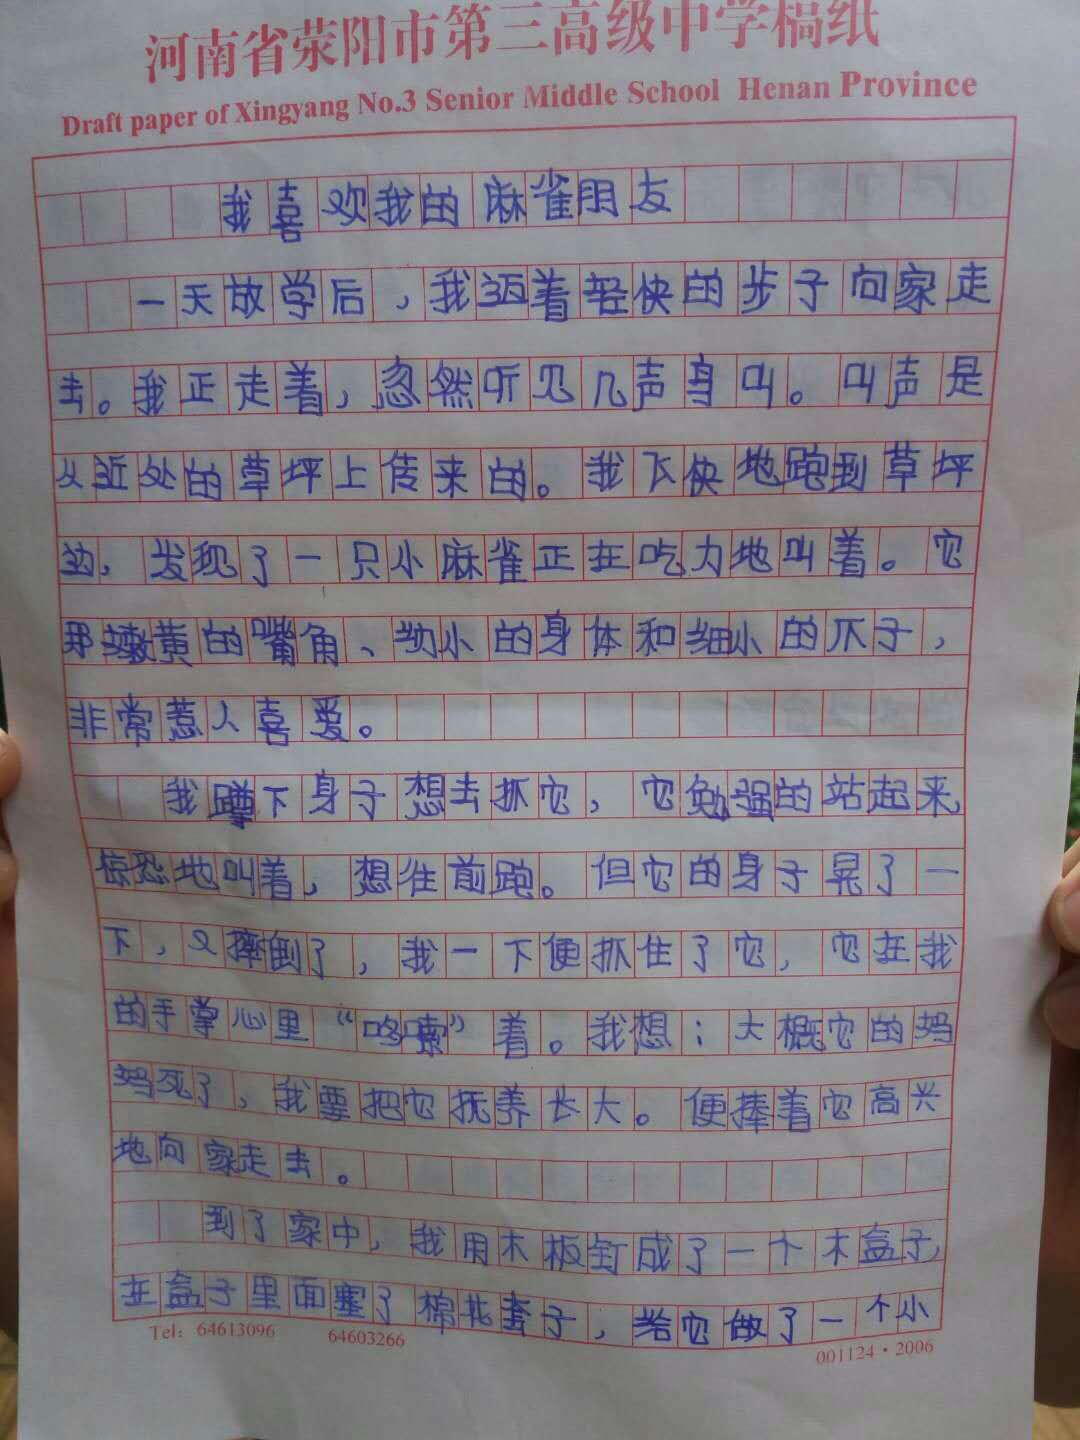 河南省荥阳市第三高级中学稿纸
Draft paper of Xingyang No.3 Senior Middle School Henan Province
我喜欢我的麻雀朋友
一天放学后，我迈着轻快的步子向家走
去。我正走着，忽然听见几声鸟叫。叫声是
从近处的草坪上传来的。我飞快地跑到草坪
边，发现了一只小麻雀正在吃力地叫着。它
那嫩黄的嘴角、幼小的身体和细小的爪子，
非常惹人喜爱。
我蹲下身子想去抓它，它勉强的站起来
惊恐地叫着，想往前跑。但它的身子晃了一
下，又摔倒了，我一下便抓住了它，它在我
的手掌心里“哆嗦”着。我想：大概它的妈
妈死了，我要把它抚养长大。便捧着它高兴
地向家走去。
到了家中，我用木板钉成了一个木盒子，
在盒子里面塞了棉花套子，给它做了一个小
Tel: 64613096 64603266
001124·2006